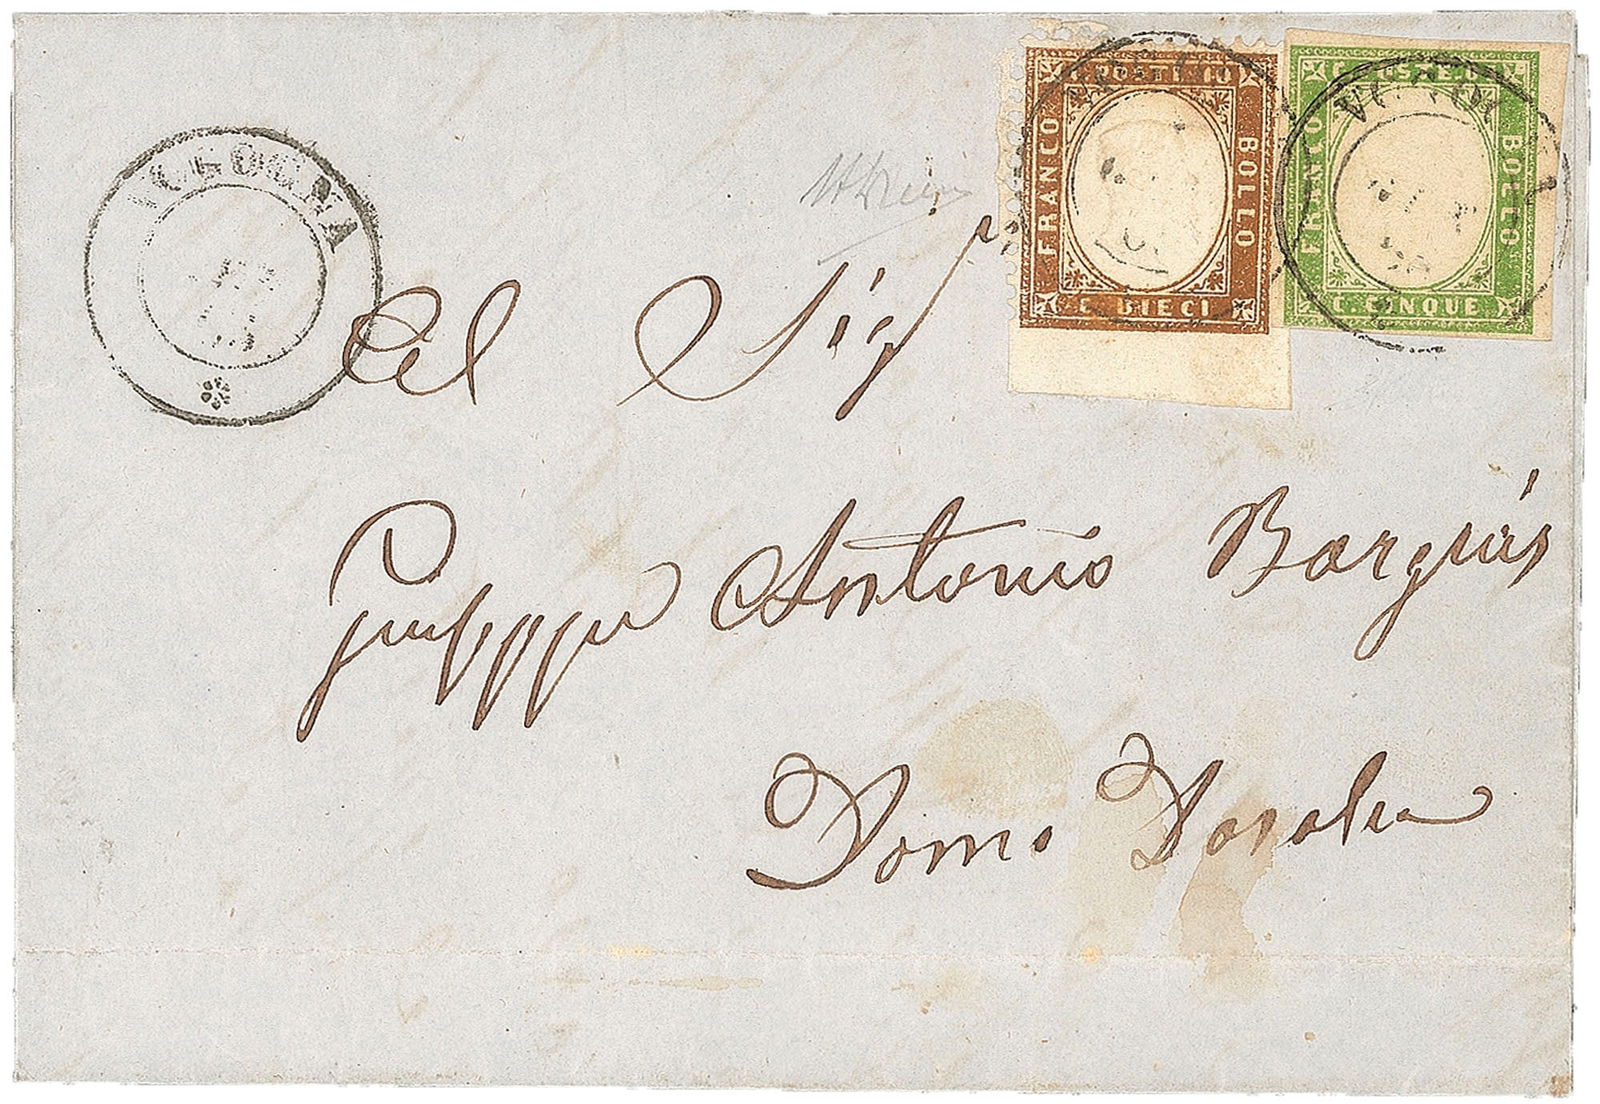 VOGOGNA
C. POSTE 10
FRANCO
BOLLO
C. DIECI
C. POSTE. 5
FRANCO
BOLLO
C. CINQUE
Al Sig
Giuseppe Antonio
Domo Dosola